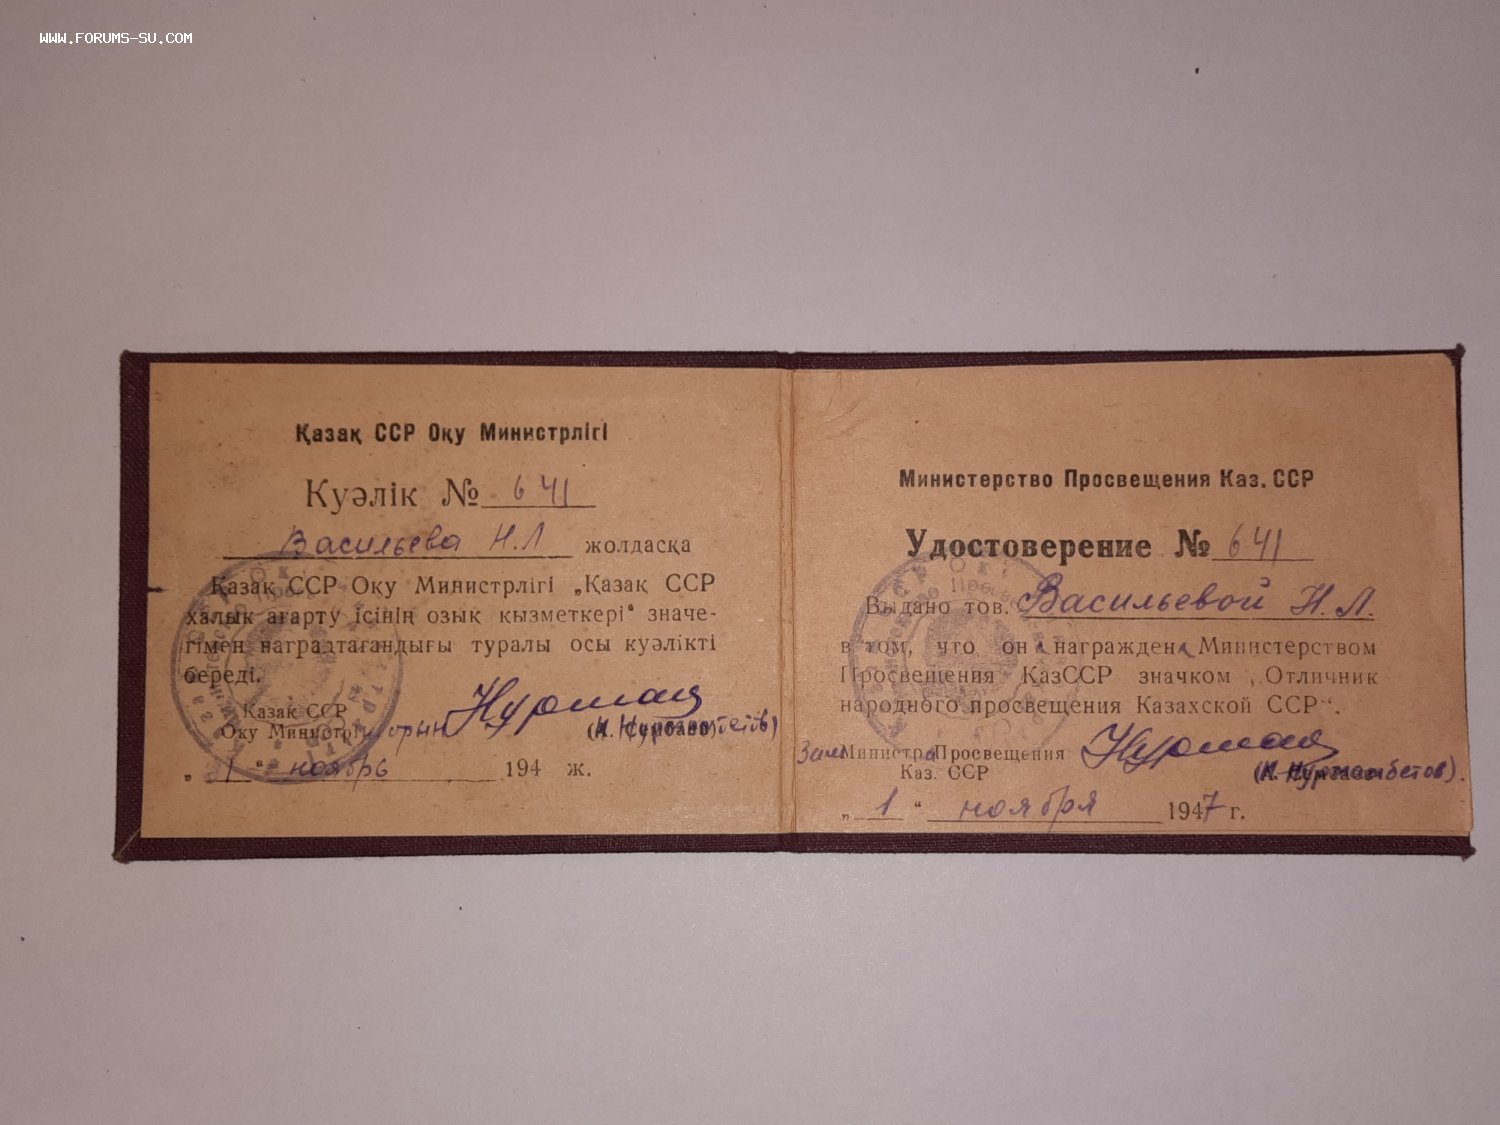 WWW.FORUMS-SU.COM
Қазақ ССР Оқу Министрлігі
Куәлік № 641
Васильева Н.Л жолдасқа
Қазақ ССР Оқу Министрлігі „Қазақ ССР
халык ағарту ісінің озық кызметкері“ значе-
гімен наградтагандығы туралы осы куәлікті
береді.
Казак ССР
Оку Министрі орын
„ 1 “ ноябрь 194 ж.
Министерство Просвещения Каз. ССР
Удостоверение № 641
Выдано тов. Васильевой Н. Л.
в том, что он а награждена Министерством
Просвещения КазССР значком „Отличник
народного просвещения Казахской ССР“.
Зам Министра Просвещения
Каз. ССР
„ 1 “ ноября 1947 г.